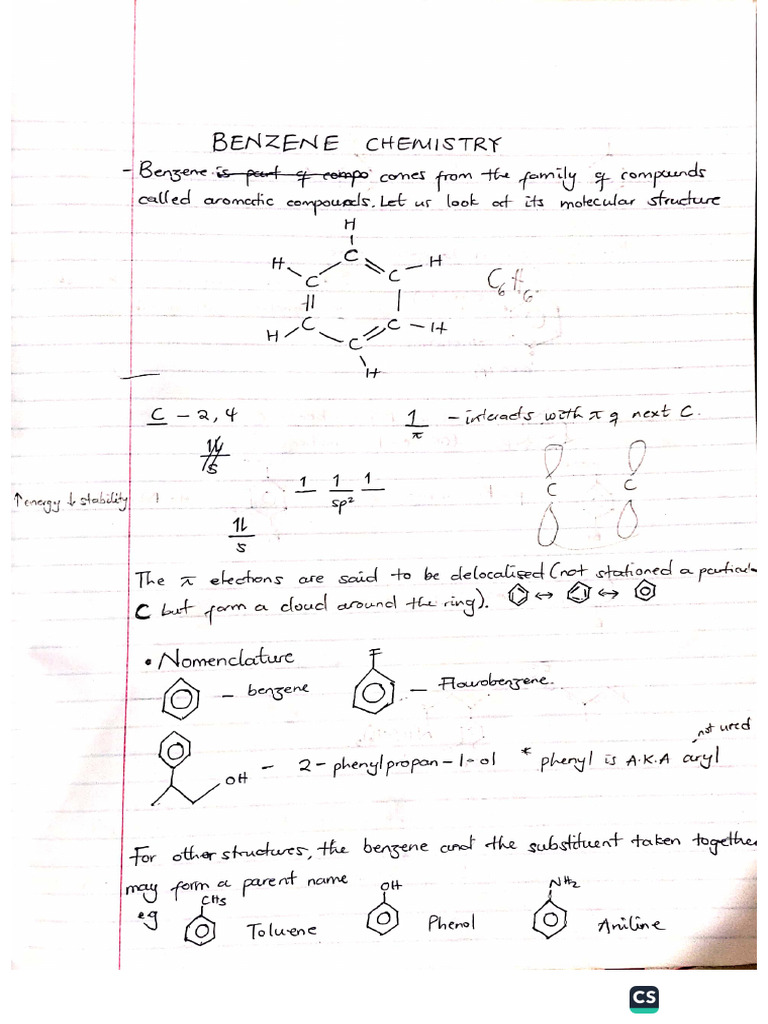 BENZENE CHEMISTRY
- Benzene is part of compo comes from the family of compounds
called aromatic compounds. Let us look at its molecular structure
H
H C H
C C
C₆H₆
C C - H
H C
H
C - 2, 4
1 - interacts with π of next C.
π
1L
s
1 1 1
sp²
C C
↑ energy ↓ stability
1L
s
The π electrons are said to be delocalised (not stationed a particul
C but form a cloud around the ring). ↔ ↔
• Nomenclature
- benzene
F
- Flourobenzene.
OH - 2-phenylpropan-1-ol * phenyl is A.K.A aryl
not used
For other structures, the benzene and the substituent taken together
may form a parent name
eg
CH₃ Toluene
OH Phenol
NH₂ Aniline
CS